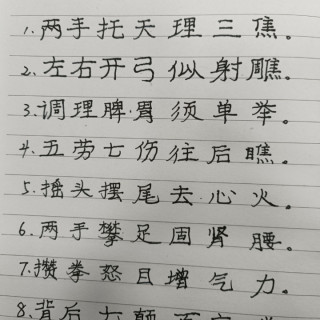 1.两手托天理三焦。
2.左右开弓似射雕。
3.调理脾胃须单举。
4.五劳七伤往后瞧。
5.摇头摆尾去心火。
6.两手攀足固肾腰。
7.攒拳怒目增气力。
8.背后七颠